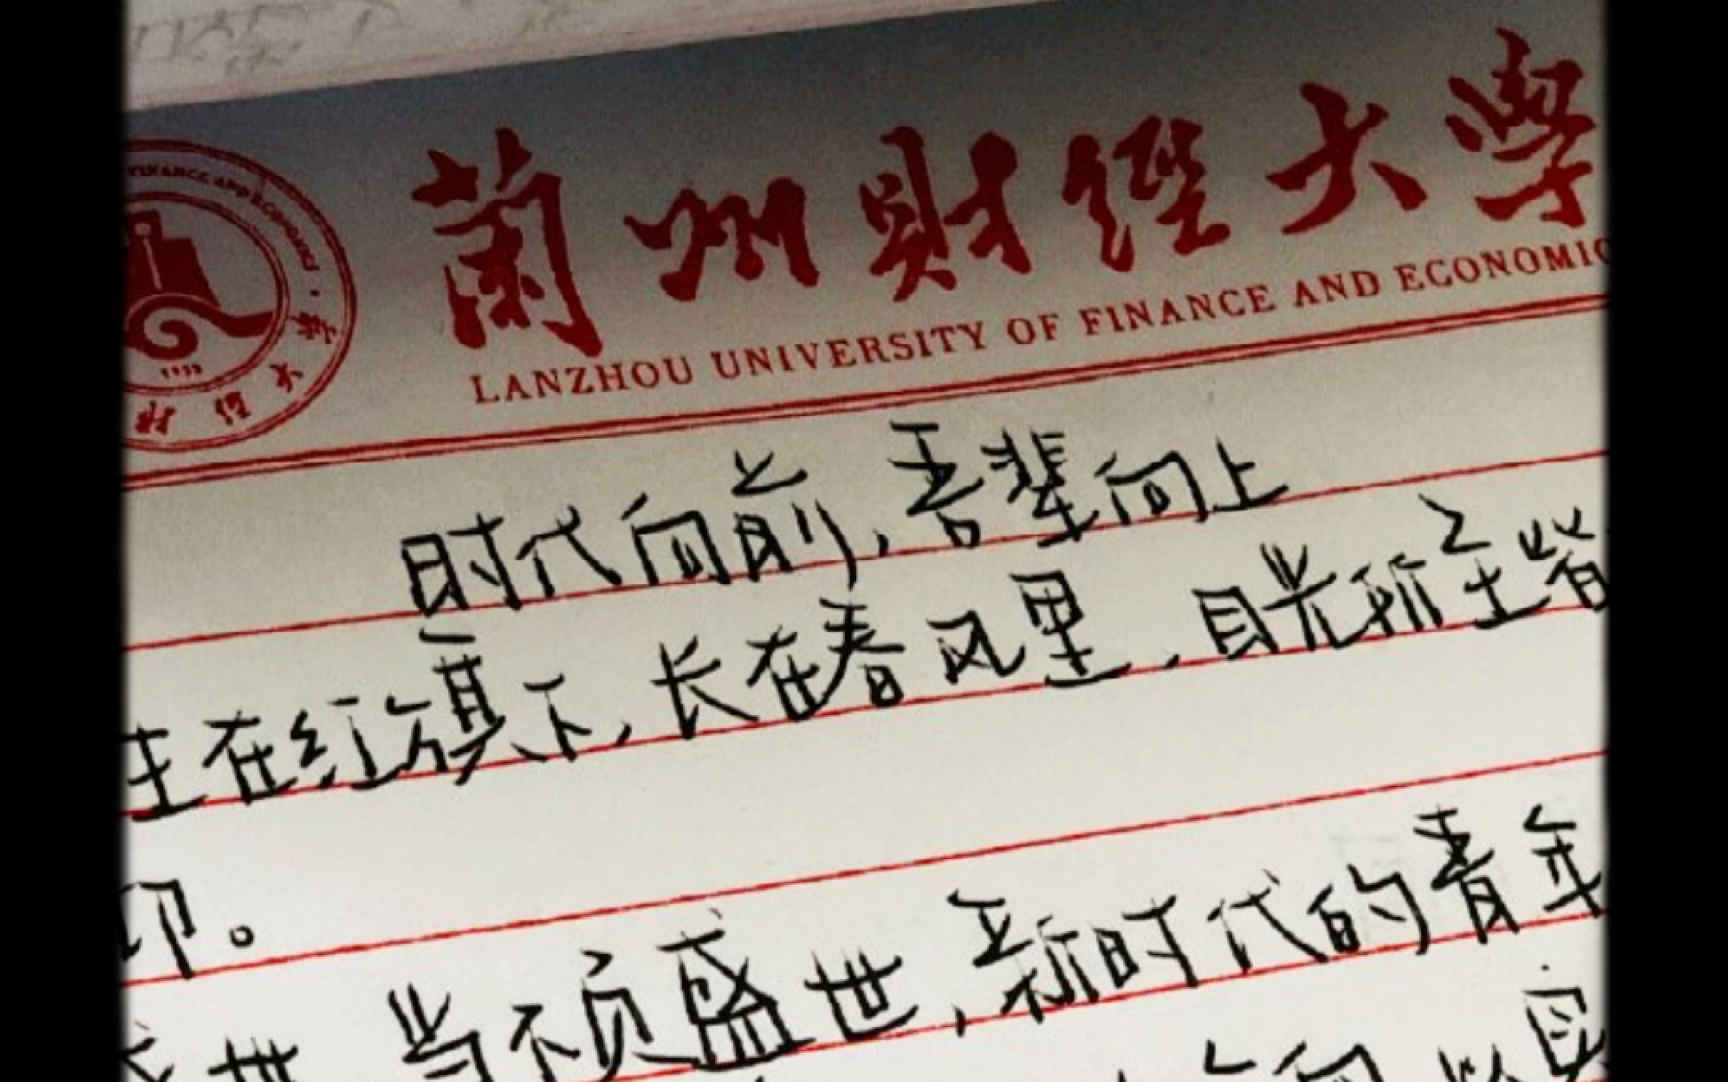 兰州财经大学
LANZHOU UNIVERSITY OF FINANCE AND ECONOMIC
FINANCE AND ECONOMICS
财经大学
时代向前,吾辈向上
生在红旗下,长在春风里,目光所至皆
印。
世 当不负盛世,新时代的青年